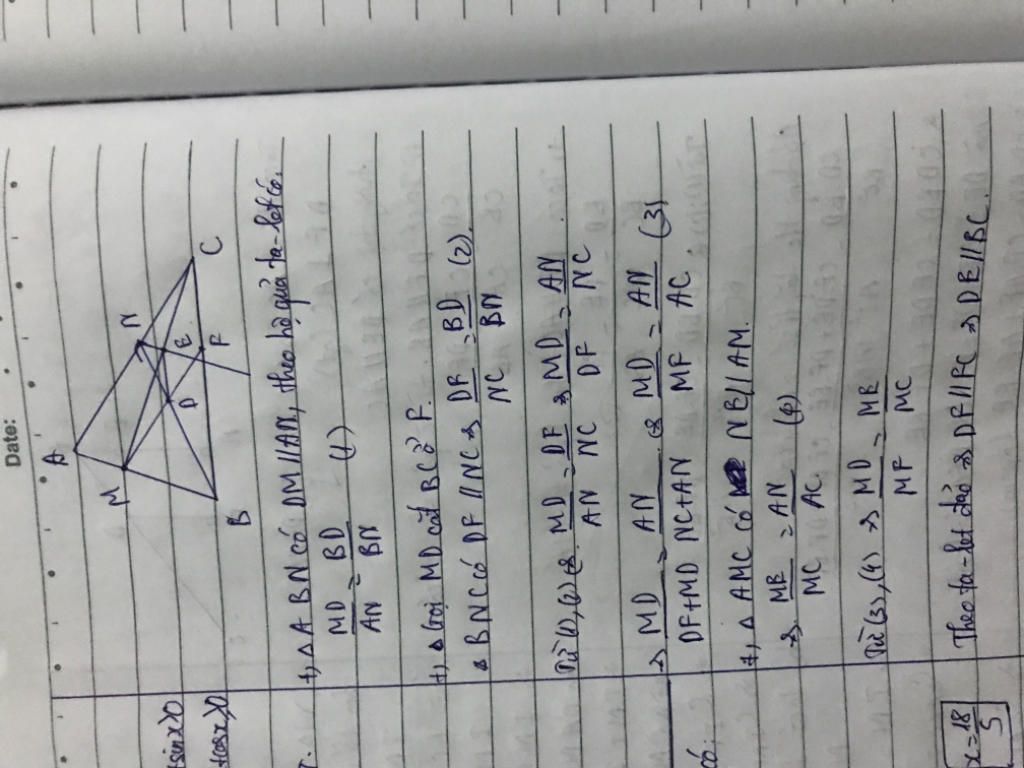 Date:
A
M
N
D
E
B
F
C
+, Δ ABN có DM//AN, theo hệ quả ta-let có.
MD/AN = BD/BN (1)
+, Gọi MD cắt BC ở F.
Δ BNC có DF//NC => DF/NC = BD/BN (2).
Từ (1), (2) => MD/AN = DF/NC => MD/DF = AN/NC
=> MD/DF+MD = AN/NC+AN => MD/MF = AN/AC (3)
+, Δ AMC có NE//AM.
=> ME/MC = AN/AC (4)
Từ (3), (4) => MD/MF = ME/MC
Theo ta-let đảo => DF//FC => DE//BC.
+sinx>0
+cosx>0
có:
x=18/5